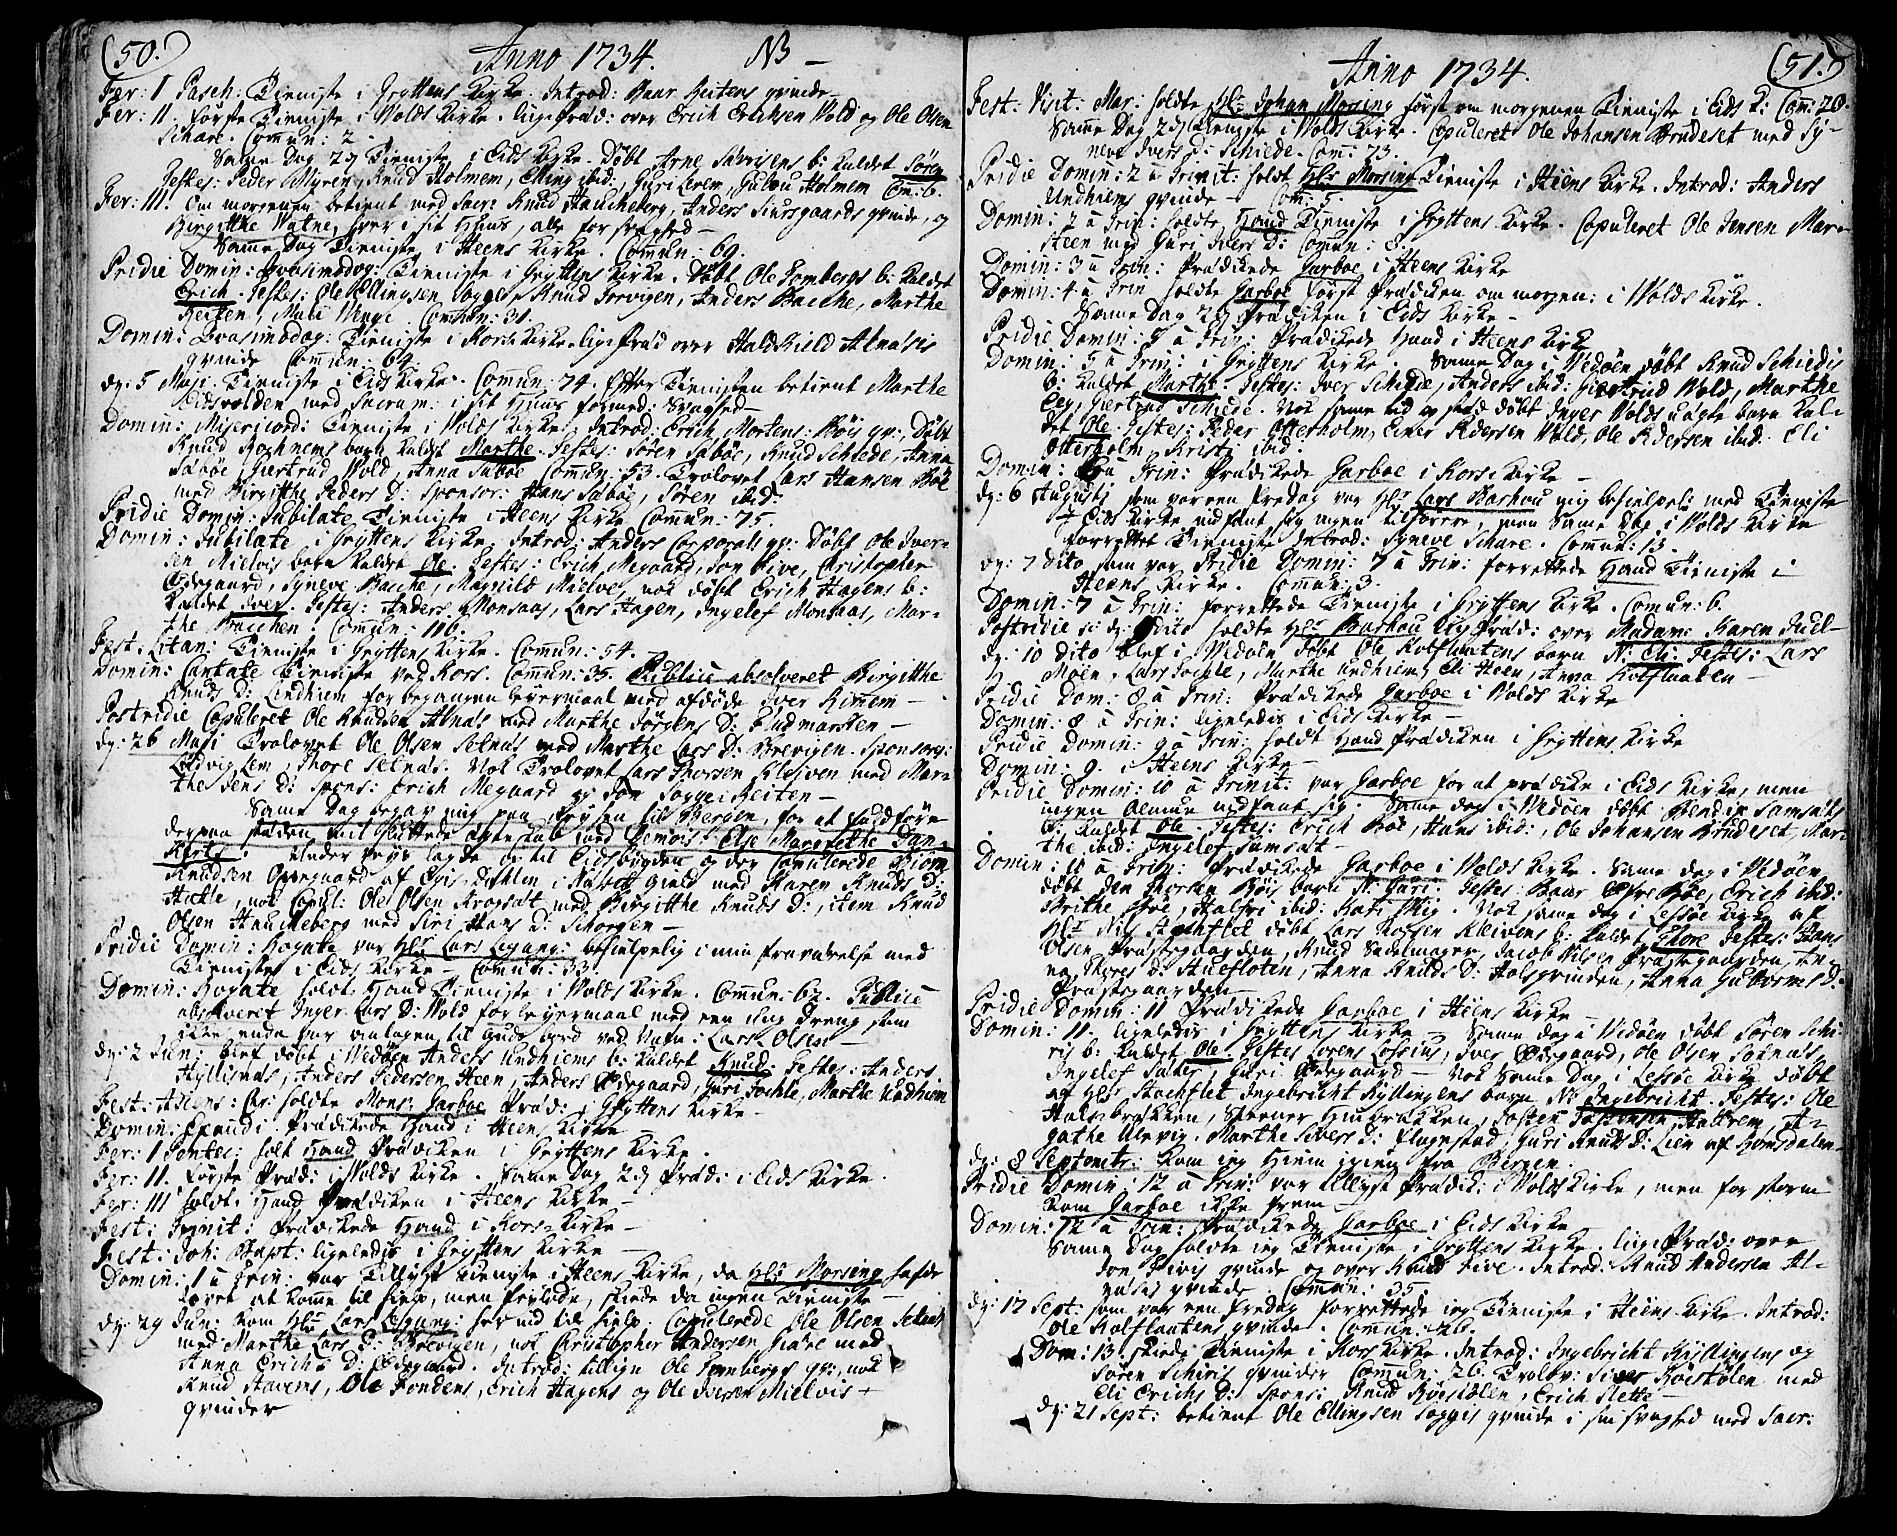 (50.)
Anno 1734. NB
Fer: I Pasch: Tieniste i Gryttens Kirke. Introd: Baar Reitens qvinde
Fer: II. første Tieniste i Wolds Kirke. liigPræd: over Erich Erichsen Wold og Ole Olsen
Schare. Commun: 2
Samme Dag 2den Tieniste i Eids Kirke. Døbt Arne b: kaldet Jøren
Testes: Peder Myren, Knud Holmem, Elling ibid:, Guri Lerem, Holmem Com: 6.
Fer: III. Om morgenen betient med Sacr: Knud Hauckeberg, Anders qvinde, og
Birgitthe Watne, hver i sit Huus, alle for svaghed
Samme Dag Tieniste i Heens Kirke. Commun: 69.
Pridie Domin: Qvasimodog: Tieniste i Gryttens Kirke. Døbt Ole Tombergs b: kaldet
Erich. Testes: Ole Ellingsen Sogge, Knud Sorvigen, Anders Bache, Marthe
Reiten, Mali Venge Commun: 31.
Domin: Qvasimodog: Tieniste i Kors Kirke. ligePræd over Haldkield Alnæsis
qvinde Commun: 64.
dg: 5 Maji. Tieniste i Eids Kirke. Commun: 74. Efter Tienisten betient Marthe
Eidsvolden med Sacram: i sit Huus formed: Svaghed
Domin: Misericord: Tieniste i Wolds Kirke. Introd: Erich Mortens: Bøis qv:, Døbt
Knud barn kaldet Marthe. Testes: Søren Sabøe, Knud Schiede, Anna
Sabøe Giertrud Wold, Anna Sabøe Commun: 53. Trolovet Lars Hansen Bøe
med Birgitthe Peders D: sponsor: Hans Sabøe, Søren ibid:
Pridie Domin: Jubilate Tieniste i Heens Kirke Commun: 75.
Domin: Jubilate i Gryttens Kirke. Introd: Anders Corporals qv: Døbt Ole Iver-
sen Mielvis barn kaldet Ole. Testes: Erich Megaard, Jon Five, Christopher
Ødegaard, Syneve Bache, Magnild Mielve, nok døbt Erich Hagens b:
kaldet Iver. Testes: Anders Monsaas, Lars Hagen, Ingelef Monsaas, Mar-
the Commun: 116.
Fest: Litan: Tieniste i Gryttens Kirke. Commun: 54.
Domin: Cantate Tieniste ved Kors. Commun: 35. Publice absolveret Birgitthe
Knuds D: Lindhiem for begangen Leyermaal med afdøde Iver Rimem
Postridie Copuleret Ole Knudsen Alnæs med Marthe Jørgens D:
dg: 26 Maji Trolovet Ole Olsen Setnæs med Marthe Lars D: Brevigen. Sponsores:
Ludvig Lem, Thore Setnæs. Nok Trolovet Lars Thorsen Kleiven med Mar-
the Jens D: Spons: Erich Megaard og Jon Sogge Reiten
Samme Dag begav mig paa Reysen til Bergen, for at fuldføre
der paa staden mit sluttede Ægteskab med Demois: Else Margrethe Dan-
kerts. Under Reyse lagde og til Eidsbygden og der Copulerede Biørn
Knudsen Overgaard af Eris-dahlen i Næssets gield med Karen Knuds D:
Hatle, nok Copul: Ole Olsen med Birgitthe Knuds D:, item Knud
Olsen Hauckeberg med Siri Hans D: Skorgen
Pridie Domin: Rogate var Hlr Lars Legang: behielpelig i min fraværelse med
Tieniste i Eids Kirke Commun: 33.
Domin: Rogate holdt Hand Tieniste i Wolds Kirke. Commun: 62. Publice
absolveret Inger Lars D: Wold for Leyermaal med een ung Dreng, som
ikke endnu har antagen til Guds bord ved Nafn: Lars Olsen
dg: 2 Jun: blef døbt i Wedøen Anders Undhiems b: kaldet Knud. Testes: Anders
Hyllisnæs, Anders Pedersen Heen, Anders Ødegaard, Guri Tochle, Marthe Undhiem
Fest: Ascens: Chr: holdte Mons: Garboe Præd: i Gryttens Kirke
Domin: Exaudi Prædikede Hand i Heens Kirke
Fer: I Pentec: holt Hand Prædiken i Gryttens Kirke.
Fer: II. første Præd: i Wolds Kirke. Samme Dag 2den Præd: i Eids Kirke.
Fer: III holdt Hand Prædiken i Heens Kirke
Fest: Trinit: Prædikede Hand i Kors-Kirke
Fest: Joh: Bapt: ligeledis i Gryttens Kirke
Domin: 1 a Trin: var Tillyst Tieniste i Heens Kirke, da Hlr Morsing hafde
lovet at komme til hielp, men feylede, skeede da ingen Tieniste
dg: 29 Jun: kom Hlr Lars Legang: her ind til hielp. Copulerede Ole Olsen Setnæs
med Marthe Lars D: Brevigen, nok Christopher Andersen Hiære med
Anna Erichs D: Ødegaard. Introd: tillige Ole Tombergs qv:, nok
Knud Stavems, Ole Fondens, Erich Hagens og Ole Iversen Mielvis
qvinder
(51.)
Anno 1734.
Fest: Visit: Mar: holdte Hlr Johan Morsing først om morgenen Tieniste i Eids K: Com: 20.
Samme Dag 2den Tieniste i Wolds Kirke. Copuleret Ole Johansen Brudeset med Sy-
neve Ivers D: Schiede. Com: 73.
Pridie Domin: 2 a Trinit: holdt Hlr Morsing Tieniste i Heens Kirke. Introd: Anders
Undhiems qvinde Com: 5.
Domin: 2 a Trin: holdte Hand Tieniste i Gryttens Kirke. Copuleret Ole Jensen Mari-
steen med Guri Ivers D: Commun: 8.
Domin: 3 a Trin: Prædikede Garboe i Heens Kirke
Domin: 4 a Trin holdte Garboe først Prædiken om morgen: i Wolds Kirke.
Samme Dag 2den Prædiken i Eids Kirke
Pridie Domin: 5 a Trin: Prædikede Hand i Heens Kirke
Domin: 5 a Trin: i Gryttens Kirke Samme Dag i Wedøen døbt Knud Schiedis
b: kaldet Marthe. Testes: Iver Schiede, Anders ibid: Giertrud Wold, Marthe
Eeg, Giertrud Schiede. Nok samme tid og sted døbt Inger Wolds Uægte barn kal-
det Ole. Testes: Peder Otterholm, Einer Pedersen Wold, Ole Pedersen ibid: Eli
Otterholm, Kirsti ibid:
Domin: 6 a Trin: Prædikede Garboe i Kors Kirke
dg: 6 Augusti som var een Fredag var Hlr Lars Barhou mig behielpelig med Tieniste
i Eids Kirke indfant sig ingen tilhørere, men samme dag i Wolds Kirke
forrettet Tieniste Introd: Syneve Schare. Commun: 13.
dg: 7 Dito som var Pridie Domin: 7 a Trin: forrettede Hand Tieniste i
Heens Kirke. Commun: 3.
Domin: 7 a Trin: forrettede Tieniste i Gryttens Kirke. Comun: 6.
Postridie s: dg: 9 dito holdte Hlr Barhou LiigPræd: over Madame Karen Juul
dg: 10 Dito blef i Wedøen døbt Ole Kolflaatens barn N: Eli Testes: Lars
Møen, Lars Tochle, Marthe Undhiem, Eli Heen, Anna Kolflaaten
Pridie Dom: 8 a Trin: Prædikede Garboe i Wolds Kirke
Domin: 8 a Trin: ligeledis i Eids Kirke
Pridie Domin: 9 a Trin: holdt Hand Prædiken i Gryttens Kirke
Domin: 9. i Heens Kirke
Pridie Domin: 10 a Trinit: var Garboe for at prædike i Eids Kirke, men
ingen Almue indfant sig. Samme dag i Wedøen døbt Bendix Samsæts
b: kaldet Ole. Testes: Erich Bøe, Hans ibid:, Ole Johansen Brudeset, Mar-
the ibid: Ingelef Samsæt
Domin: 10 a Trin: Prædikede Garboe i Wolds Kirke. Samme dag i Wedøen
døbt Iver Thorsen Bøis barn N: Guri. Testes: Baar Øfre Bøe, Erich ibid:
Brithe Bøe, Halfri ibid: Kari Nok samme dag i Lessøe Kirke af
Hlr Nils Stockflet døbt Lars Kleivens b: kaldet Thore Testes: Hans
Olsen Præstegaarden, Knud Sadelmager, Jacob Nilsen Præstegaarden, An-
na Thores D: Stuefloten, Anna Knuds D: Holsgrinden, Anna Gulbrands D:
Præstegaarden
Pridie Domin: 11 Prædikede Garboe i Heens Kirke
Domin: 11. ligeledis i Gryttens Kirke Samme dag i Wedøen døbt Søren Schi-
ris b: kaldet Ole Testes Lorens Lossius, Iver Ødegaard, Ole Olsen Setnæs,
Ingelef Sæter, Guri Ødegaard Nok Samme Dag i Lessøe Kirke døbt
af Hlr Stockflet Ingebricht Kyllingens barn N: Ingebricht. Testes: Ole
Holsbrækken, Steener Tosten Tostensen Andrem, A-
gathe Ulevig. Marthe Sivers D: Flugestad, Guri Knuds D: Lien af Romsdalen
dg: 8 Septembr: kom jeg Hiem igien fra Bergen.
Pridie Domin: 12 a Trin: var tillyst Prædik: i Wolds Kirke, men for storm
kom Garboe ikke frem
Domin: 12 a Trin: Prædikede Garboe i Eids Kirke
Samme Dag holdte jeg Tieniste i Gryttens Kirke. liigePræd: over
Jon Fivis qvinde og over Knud Five. Introd: Knud Andersen Al-
næses qvinde Commun: 35
dg: 17 Sept: som var een Fredag forrettede jeg Tieniste i Heens Kirke. Introd:
Ole Kolflaatens qvinde. Commun: 26.
Dom: 13. skeede Tieniste i Kors Kirke. Introd: Ingebricht Kyllingens og
Søren Schiris qvinder Commun: 26. Trolov: Siver Kørstølen med
Eli Erichs D: Spons: Knud Kørstølen, Erich Slette
dg: 21 Sept: betient Ole Ellingsen Soggis qvinde i sin svaghed med Sacr: